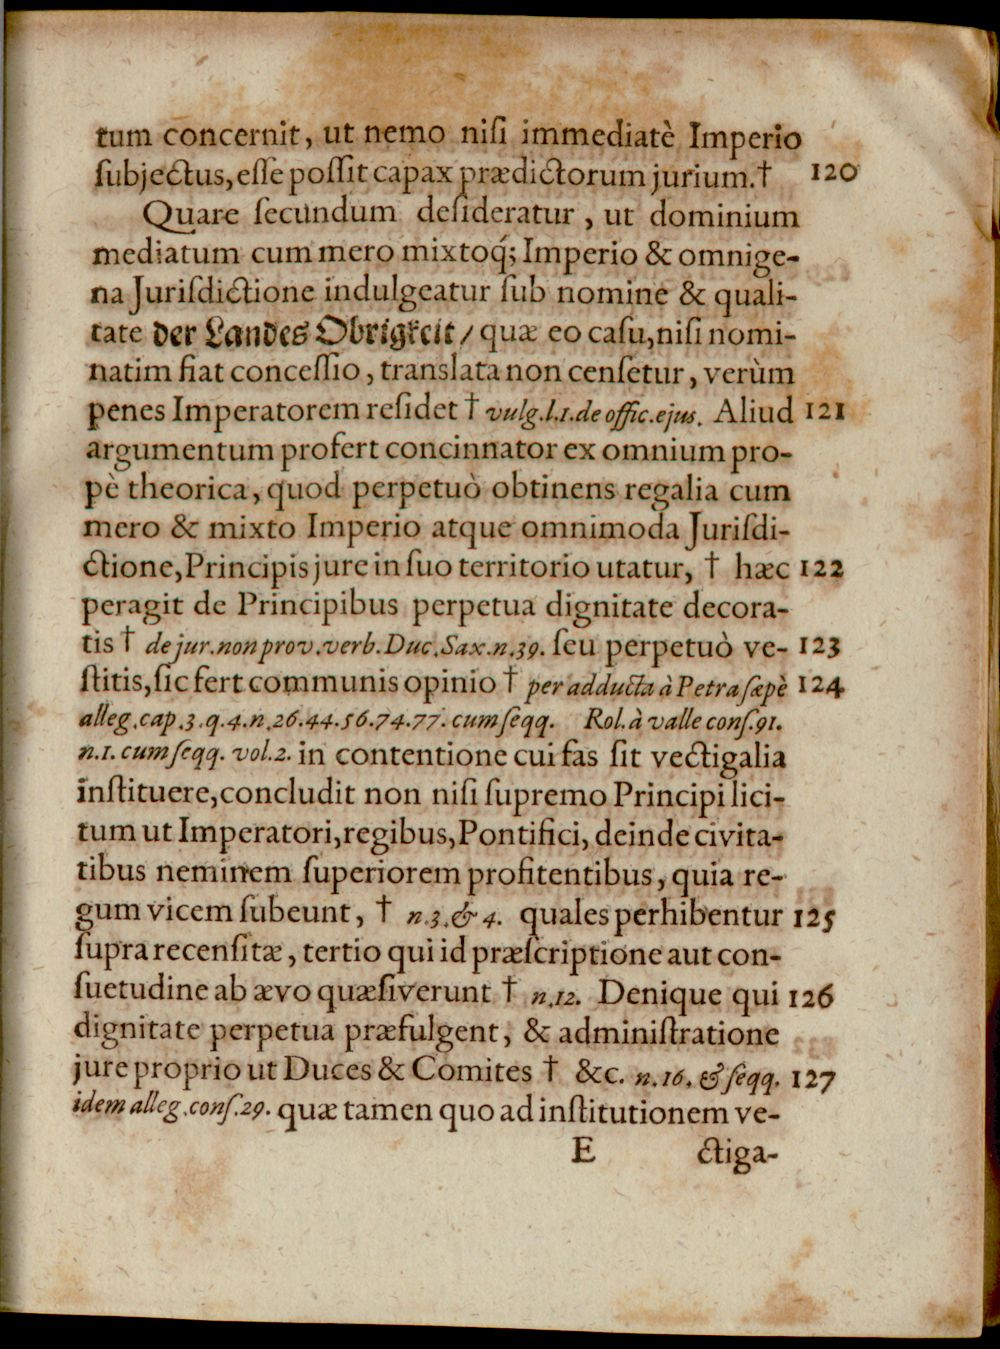 tum concernit, ut nemo niſi immediatè Imperio
ſubjectus, eſſe poſſit capax prædictorum jurium.† 120
Quare ſecundum deſideratur, ut dominium
mediatum cum mero mixtoq́; Imperio & omnige-
na Juriſdictione indulgeatur ſub nomine & quali-
tate der Landes Obrigkeit / quæ eo caſu, niſi nomi-
natim fiat conceſſio, translata non cenſetur, verùm
penes Imperatorem reſidet † vulg. l. 1. de offic. ejus. Aliud 121
argumentum profert concinnator ex omnium pro-
pè theorica, quod perpetuò obtinens regalia cum
mero & mixto Imperio atque omnimoda Juriſdi-
ctione, Principis jure in ſuo territorio utatur, † hæc 122
peragit de Principibus perpetua dignitate decora-
tis † de jur. non prov. verb. Duc. Sax. n. 39. ſeu perpetuò ve- 123
ſtitis, ſic fert communis opinio † per adducta à Petra ſæpè 124
alleg. cap. 3. q. 4. n. 26. 44. 56. 74. 77. cum ſeqq. Rol. à valle conſ. 91.
n. 1. cum ſeqq. vol. 2. in contentione cui fas ſit vectigalia
inſtituere, concludit non niſi ſupremo Principi lici-
tum ut Imperatori, regibus, Pontifici, deinde civita-
tibus neminem ſuperiorem profitentibus, quia re-
gum vicem ſubeunt, † n. 3. & 4. quales perhibentur 125
ſupra recenſitæ, tertio qui id præſcriptione aut con-
ſuetudine ab ævo quæſiverunt † n. 12. Denique qui 126
dignitate perpetua præfulgent, & adminiſtratione
jure proprio ut Duces & Comites † &c. n. 16. & ſeqq. 127
idem alleg. conſ. 29. quæ tamen quo ad inſtitutionem ve-
E ctiga-